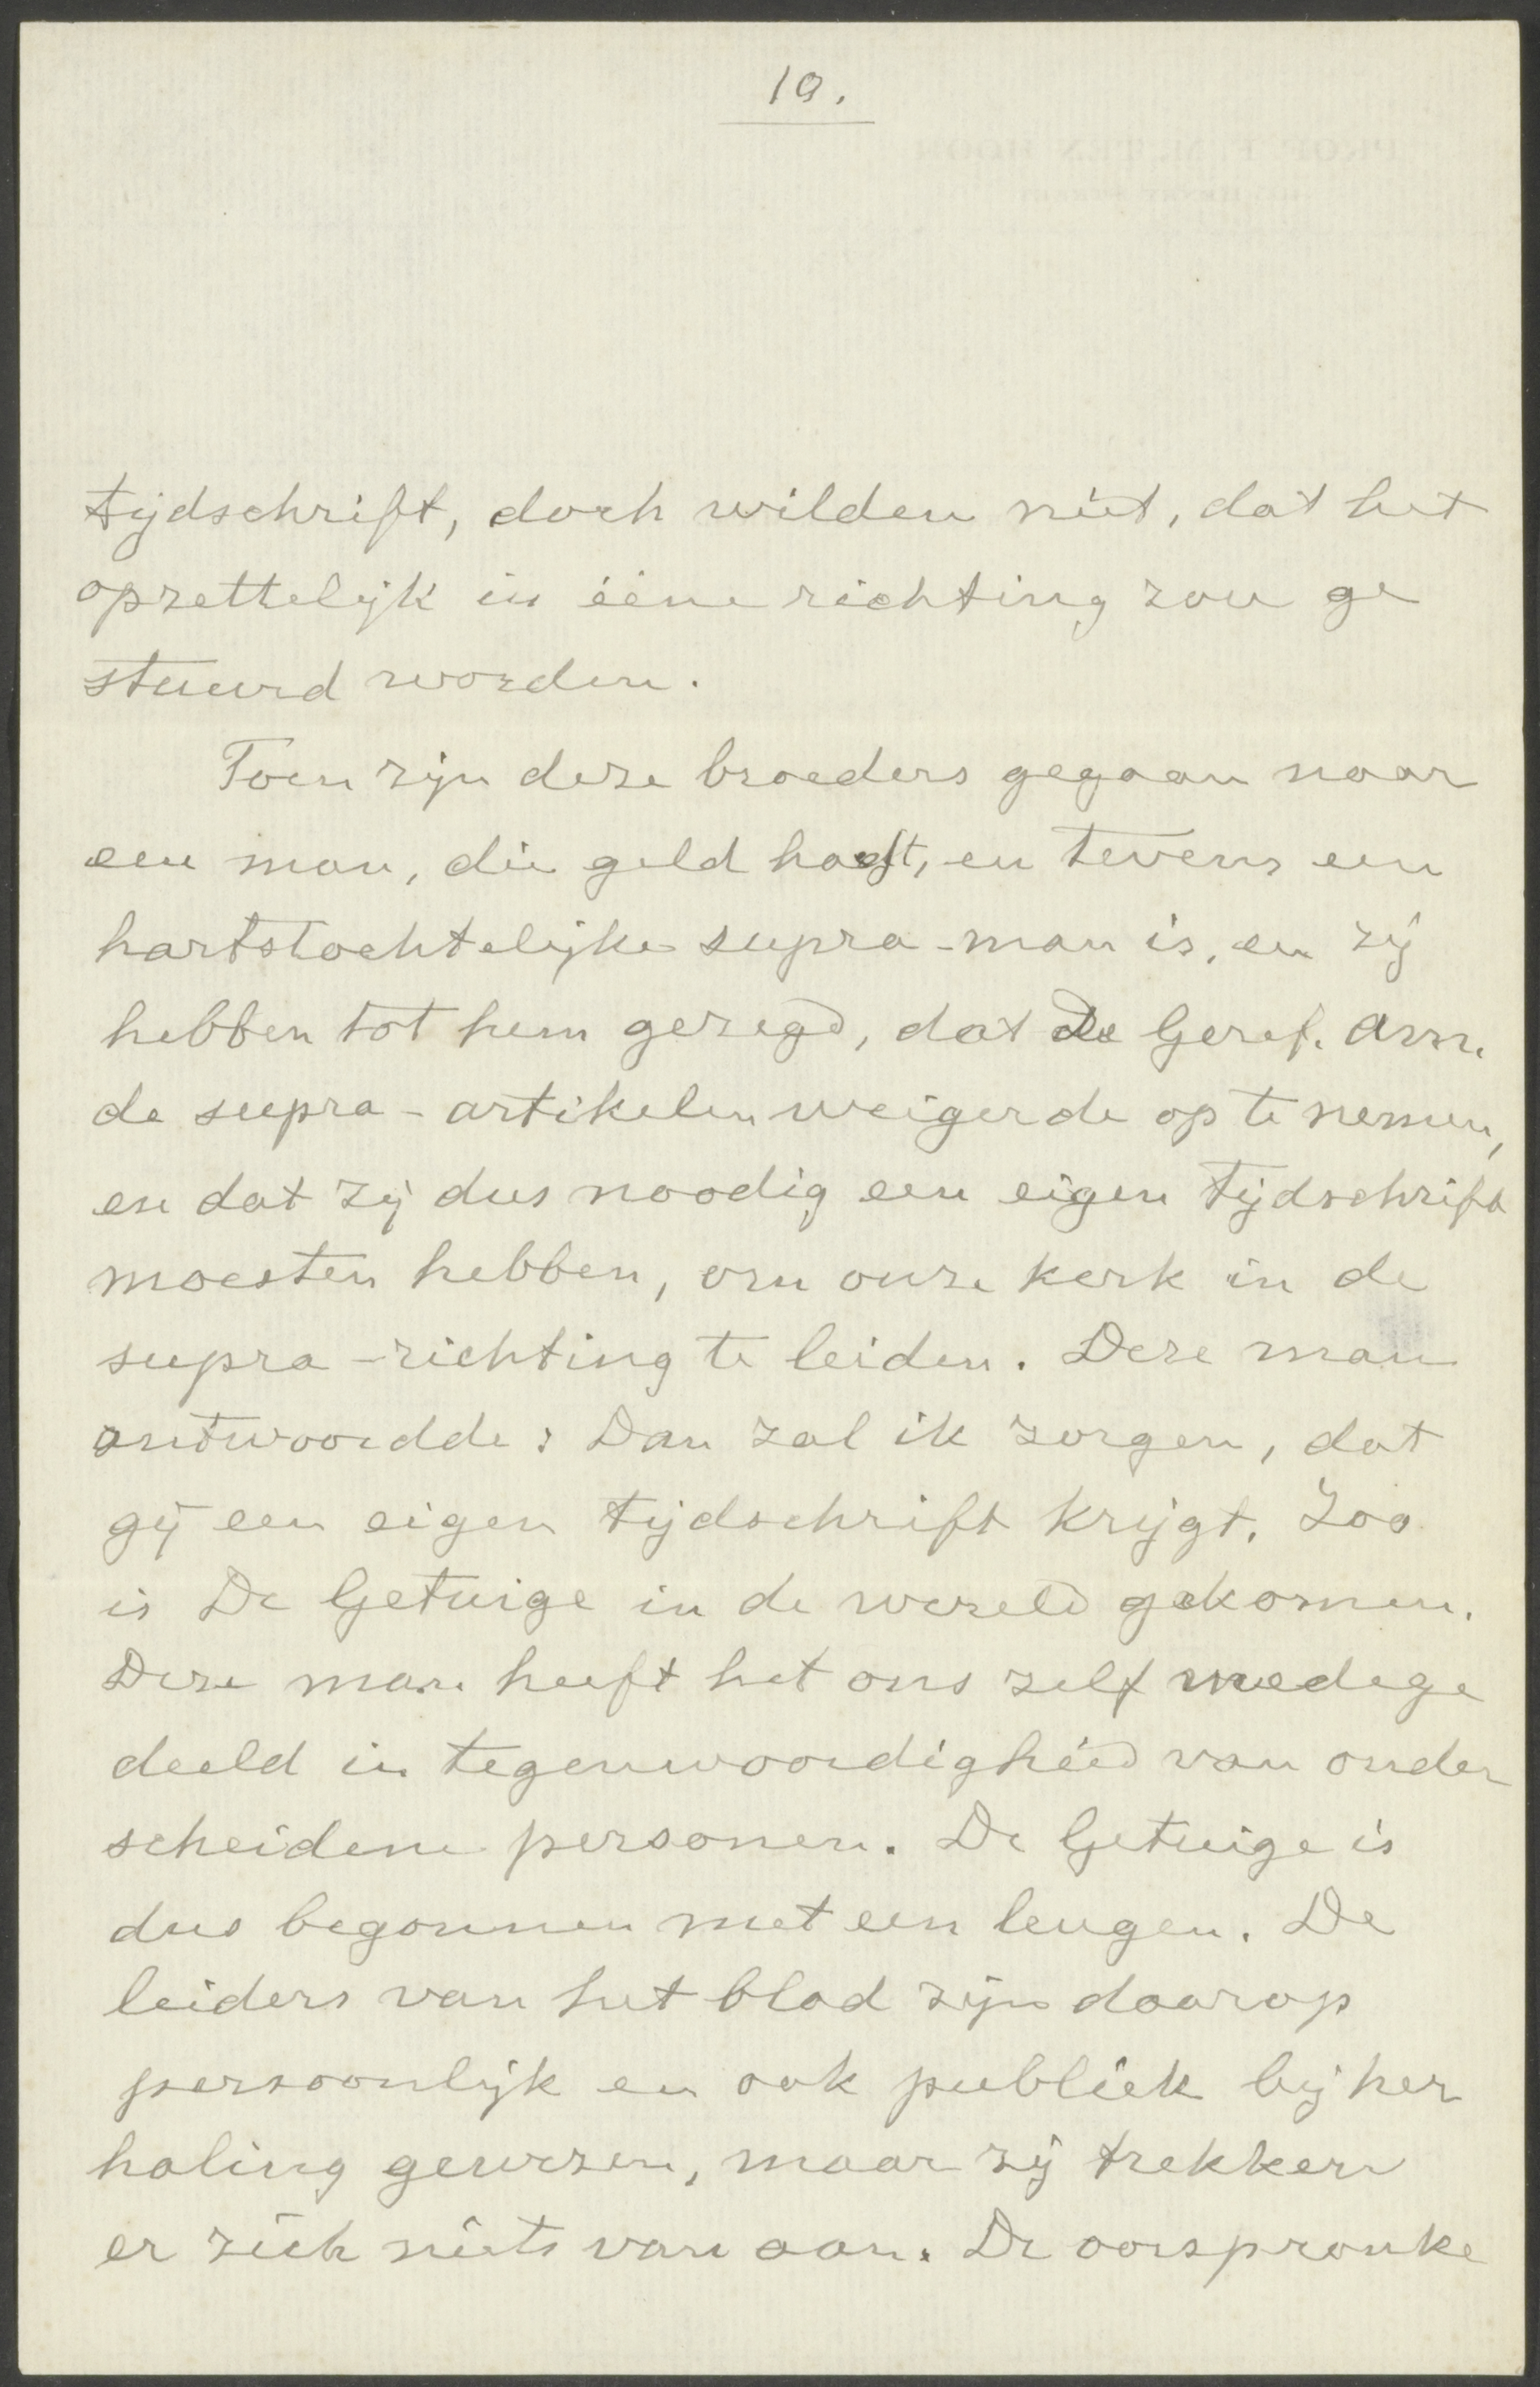 10.
tijdschrift, doch wilden niet, dat het
opzettelijk in ééne richting zou ge
stuurd worden.
Toen zijn deze broeders gegaan naar
een man, die geld heeft, en tevens een
hartstochtelijke supra-man is, en zij
hebben tot hem gezegd, dat de Geref. Am.
de supra-artikelen weigerde op te nemen,
en dat zij dus noodig een eigen tijdschrift
moesten hebben, om onze kerk in de
supra-richting te leiden. Deze man
antwoordde: Dan zal ik zorgen, dat
gij een eigen tijdschrift krijgt. Zoo
is De Getuige in de wereld gekomen.
Deze man heeft het ons zelf medege
deeld in tegenwoordigheid van onder
scheidene personen. De Getuige is
dus begonnen met een leugen. De
leiders van het blad zijn daarop
persoonlijk en ook publiek bij her
haling gewezen, maar zij trekken
er zich niets van aan. De oorspronke